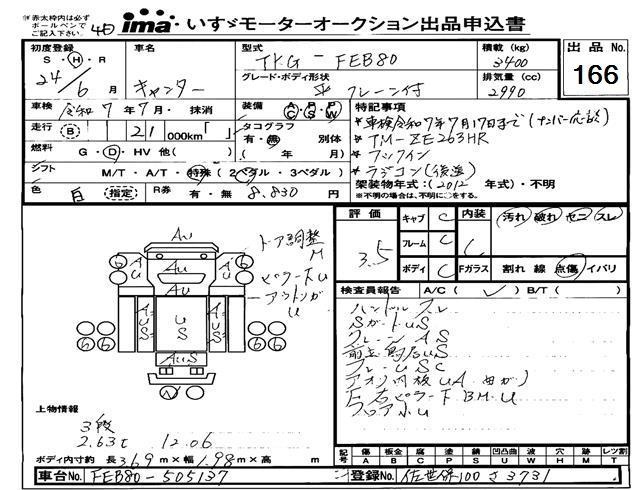 ※赤太枠内は必ず
ボールペンで
ご記入下さい
ima いすゞモーターオークション出品申込書
出品No.
166
初度登録 S・H・R 24年 6月
車名 キャンター
型式 TKG - FEB80
積載(kg) 3400
グレード・ボディ形状 平 クレーン付
排気量(cc) 2990
車検 令和7年7月・抹消
装備 AC PS PW
特記事項
*車検令和7年7月17日まで(ナンバー応談)
走行 B 21 000km
タコグラフ 有・無 別体
(年 月)
*TM-ZE263HR
*フックイン
燃料 G・D・HV 他( )
*ラジコン(後送)
シフト M/T・A/T・特殊(2ペダル・3ペダル)
架装物年式:(2012 年式)・不明
※不明の場合は、不明に○をする。
色 白 指定 R券 有・無 8,830 円
評価 3.5
キャブ C
フレーム C
ボディ C
内装 C
汚れ 破れ セニ スレ
Fガラス 割れ 線 点傷 イバリ
検査員報告 A/C( ✓ ) B/T( )
ハンドルスレ
SガードUS
クレーンAS
フレームSC
アオリ内板UA曲がり
左右ピラー下BM・U
フロア小U
ドア調整
M
ピラー下U
アウトリガ
U
AU
AU
AU
AU
AUS
US
AUS
AUS
上物情報
3段
2.63t 12.06
ボディ内寸約 長 3.69 m×幅 1.98 m×高 m
記号 傷A 板金B 腐C 塗P 錆S 凹凸U 曲W 波U 穴H 欠X 割M 痕T レツ割
車台No. FEB80-505137
登録No. 佐世保100さ3731